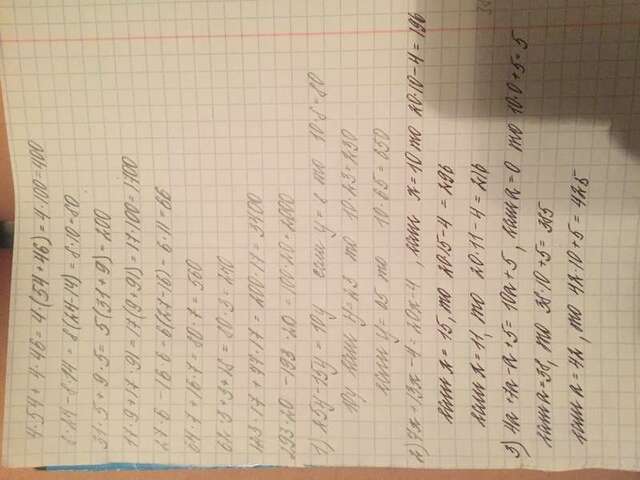 4·54+4·46=4·(54+46)=4·100=400
8·24-8·14=8(24-14)=8·10=80
31·5+9·5=5(31+9)=200
17·9+17·91=17(9+91)=17·100=1700
27·6-16·6=6(27-16)=6·11=66
64·7+16·7=80·7=560
62·3+3+18=80·3=240
123·17+77·17=200·17=3400
293·20-193·20=100·20=2000
1) 25y-15y=10y если y=8 то 10·8=80
10y если y=23 то 10·23=230
если y=65 то 10·65=650
2) 7x+13x-4=20x-4, если x=10 то 20·10-4=196
если x=15, то 20·15-4=296
если x=11, то 20·11-4=216
3) 4a+7a-a+5=10a+5, если a=0 то 10·0+5=5
если a=38, то 38·10+5=385
если a=42, то 42·10+5=425